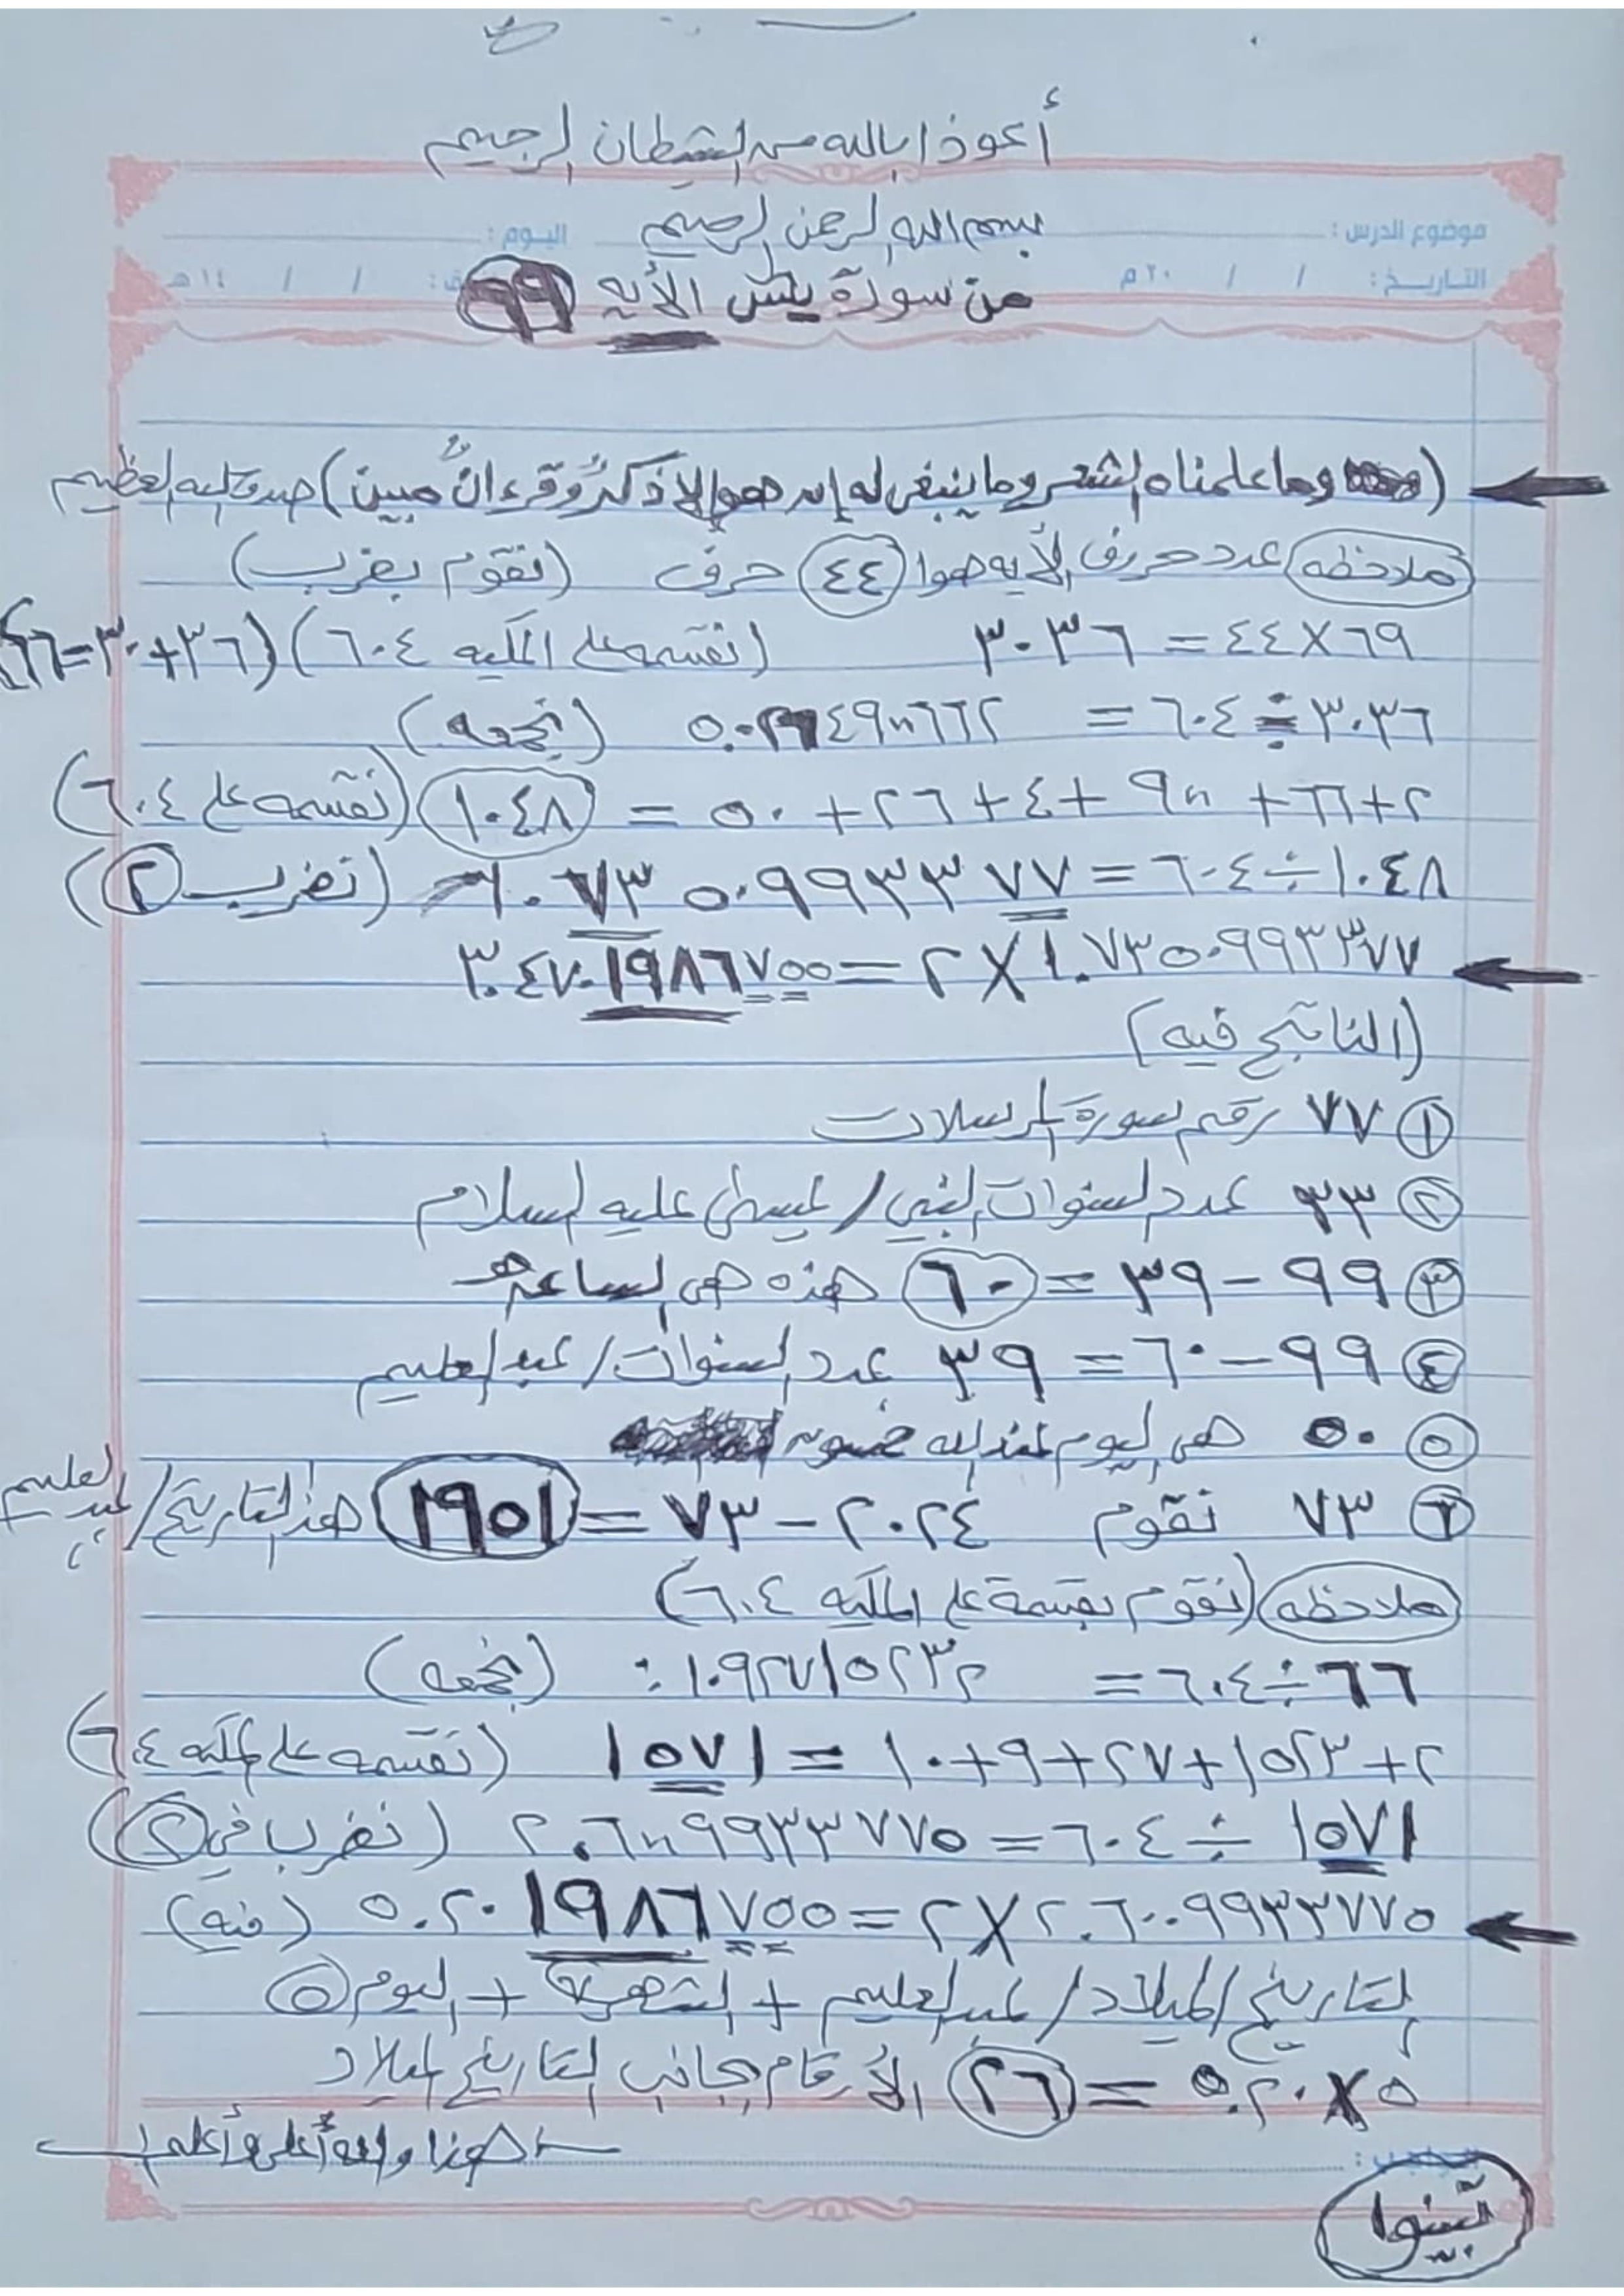 أعوذ بالله من الشيطان الرجيم
بسم الله الرحمن الرحيم
موضوع الدرس : اليـوم :
التاريـخ : / / ٢٠ م / / ١٤ هـ
من سورة يس الأيه ٦٩
(وما علمناه الشعر وما ينبغى له إن هو إلا ذكرٌ وقرءانٌ مبين) صدق الله العظيم
ملاحظه عدد حروف الأيه هوا ٤٤ حرف (نقوم بضرب)
٦٩ × ٤٤ = ٣٠٣٦ (نقسمه على المكيه ٦٠٤) (٣٦+٣٠=٦٦)
٣٠٣٦ ÷ ٦٠٤ = ٥.٠٢٦٤٩٨٦٦٢ (نجمعه)
٢+٦٦+٩٨+٤+٢٦+٥٠ = ١٠٤٨ (نقسمه على ٦٠٤)
١٠٤٨ ÷ ٦٠٤ = ١.٧٣٥٠٩٩٣٣٧٧ (نضرب ٢)
١.٧٣٥٠٩٩٣٣٧٧ × ٢ = ٣.٤٧٠١٩٨٦٧٥٥
(الناتج فيه)
١ ٧٧ رقم سورة المرسلات
٢ ٣٣ عدد السنوات النبي / عيسى عليه السلام
٣ ٩٩ – ٣٩ = ٦٠ هذه هى الساعه
٤ ٩٩ – ٦٠ = ٣٩ عدد السنوات / عبد العليم
٥ ٥٠ هى اليوم عند الله خمسون
٦ ٧٣ نقوم ٢٠٢٤ – ٧٣ = ١٩٥١ هذ التاريخ / عبد العليم
ملاحظه (نقوم بقسمة على المكيه ٦٠٤)
٦٦ ÷ ٦٠٤ = ١٠٩٢٧١٥٢٣٢. (نجمعه)
٢+١٥٢٣+٢٧+٩+١٠ = ١٥٧١ (نقسمه على المكيه ٦٠٤)
١٥٧١ ÷ ٦٠٤ = ٢.٦٠٠٩٩٣٣٧٧٥ (نضرب في ٢)
٢.٦٠٠٩٩٣٣٧٧٥ × ٢ = ٥.٢٠١٩٨٦٧٥٥ (فيه)
التاريخ الميلاد / عبد العليم + الشهر ٧ + اليوم ٥
٥ × ٥.٢٠ = ٢٦ الأرقام بجانب التاريخ الميلاد
هذا والله أعلى وأعلم
تبينوا